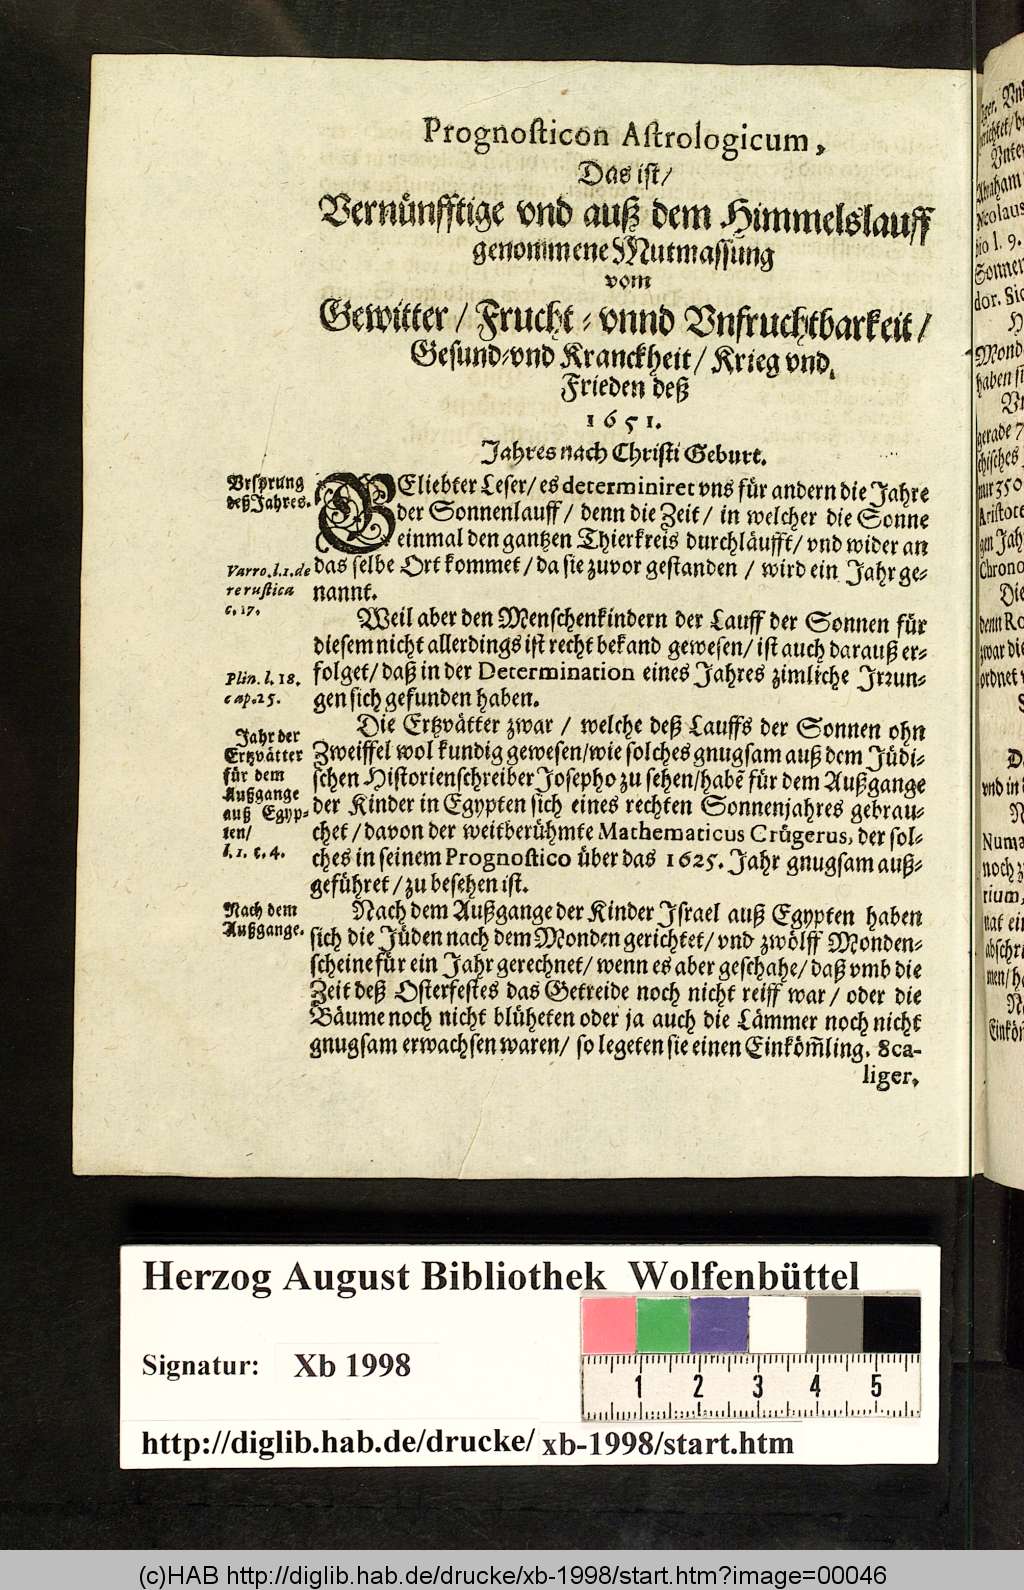 Prognosticon Astrologicum,
Das ist/
Vernünfftige vnd auß dem Himmelslauff
genommene Mutmassung
vom
Gewitter / Frucht- vnnd Vnfruchtbarkeit /
Gesund-vnd Kranckheit / Krieg vnd
Frieden deß
1651.
Jahres nach Christi Geburt.
Vrsprung
deß Jahres.
GEliebter Leser / es determiniret vns für andern die Jahre
der Sonnenlauff / denn die Zeit / in welcher die Sonne
einmal den gantzen Thierkreis durchläufft / vnd wider an
Varro. l. 1. de
re rustica
c. 17.
das selbe Ort kommet / da sie zuvor gestanden / wird ein Jahr ge-
nannt.
Weil aber den Menschenkindern der Lauff der Sonnen für
diesem nicht allerdings ist recht bekand gewesen / ist auch darauß er-
Plin. l. 18.
cap. 25.
folget / daß in der Determination eines Jahres zimliche Irrun-
gen sich gefunden haben.
Jahr der
Ertzvätter
für dem
Außgange
auß Egyp-
ten/
l. 1. c. 4.
Die Ertzvätter zwar / welche deß Lauffs der Sonnen ohn
Zweiffel wol kundig gewesen / wie solches gnugsam auß dem Jüdi-
schen Historienschreiber Josepho zu sehen / habẽ für dem Außgange
der Kinder in Egypten sich eines rechten Sonnenjahres gebrau-
chet / davon der weitberühmte Mathematicus Crügerus, der sol-
ches in seinem Prognostico über das 1625. Jahr gnugsam auß-
geführet / zu besehen ist.
Nach dem
Außgange.
Nach dem Außgange der Kinder Israel auß Egypten haben
sich die Jüden nach dem Monden gerichtet / vnd zwölff Monden-
scheine für ein Jahr gerechnet / wenn es aber geschahe / daß vmb die
Zeit deß Osterfestes das Getreide noch nicht reiff war / oder die
Bäume noch nicht blüheten oder ja auch die Lämmer noch nicht
gnugsam erwachsen waren / so legeten sie einen Einköm̃ling. Sca-
liger,
Herzog August Bibliothek Wolfenbüttel
Signatur: Xb 1998
1 2 3 4 5
http://diglib.hab.de/drucke/ xb-1998/start.htm
(c)HAB http://diglib.hab.de/drucke/xb-1998/start.htm?image=00046